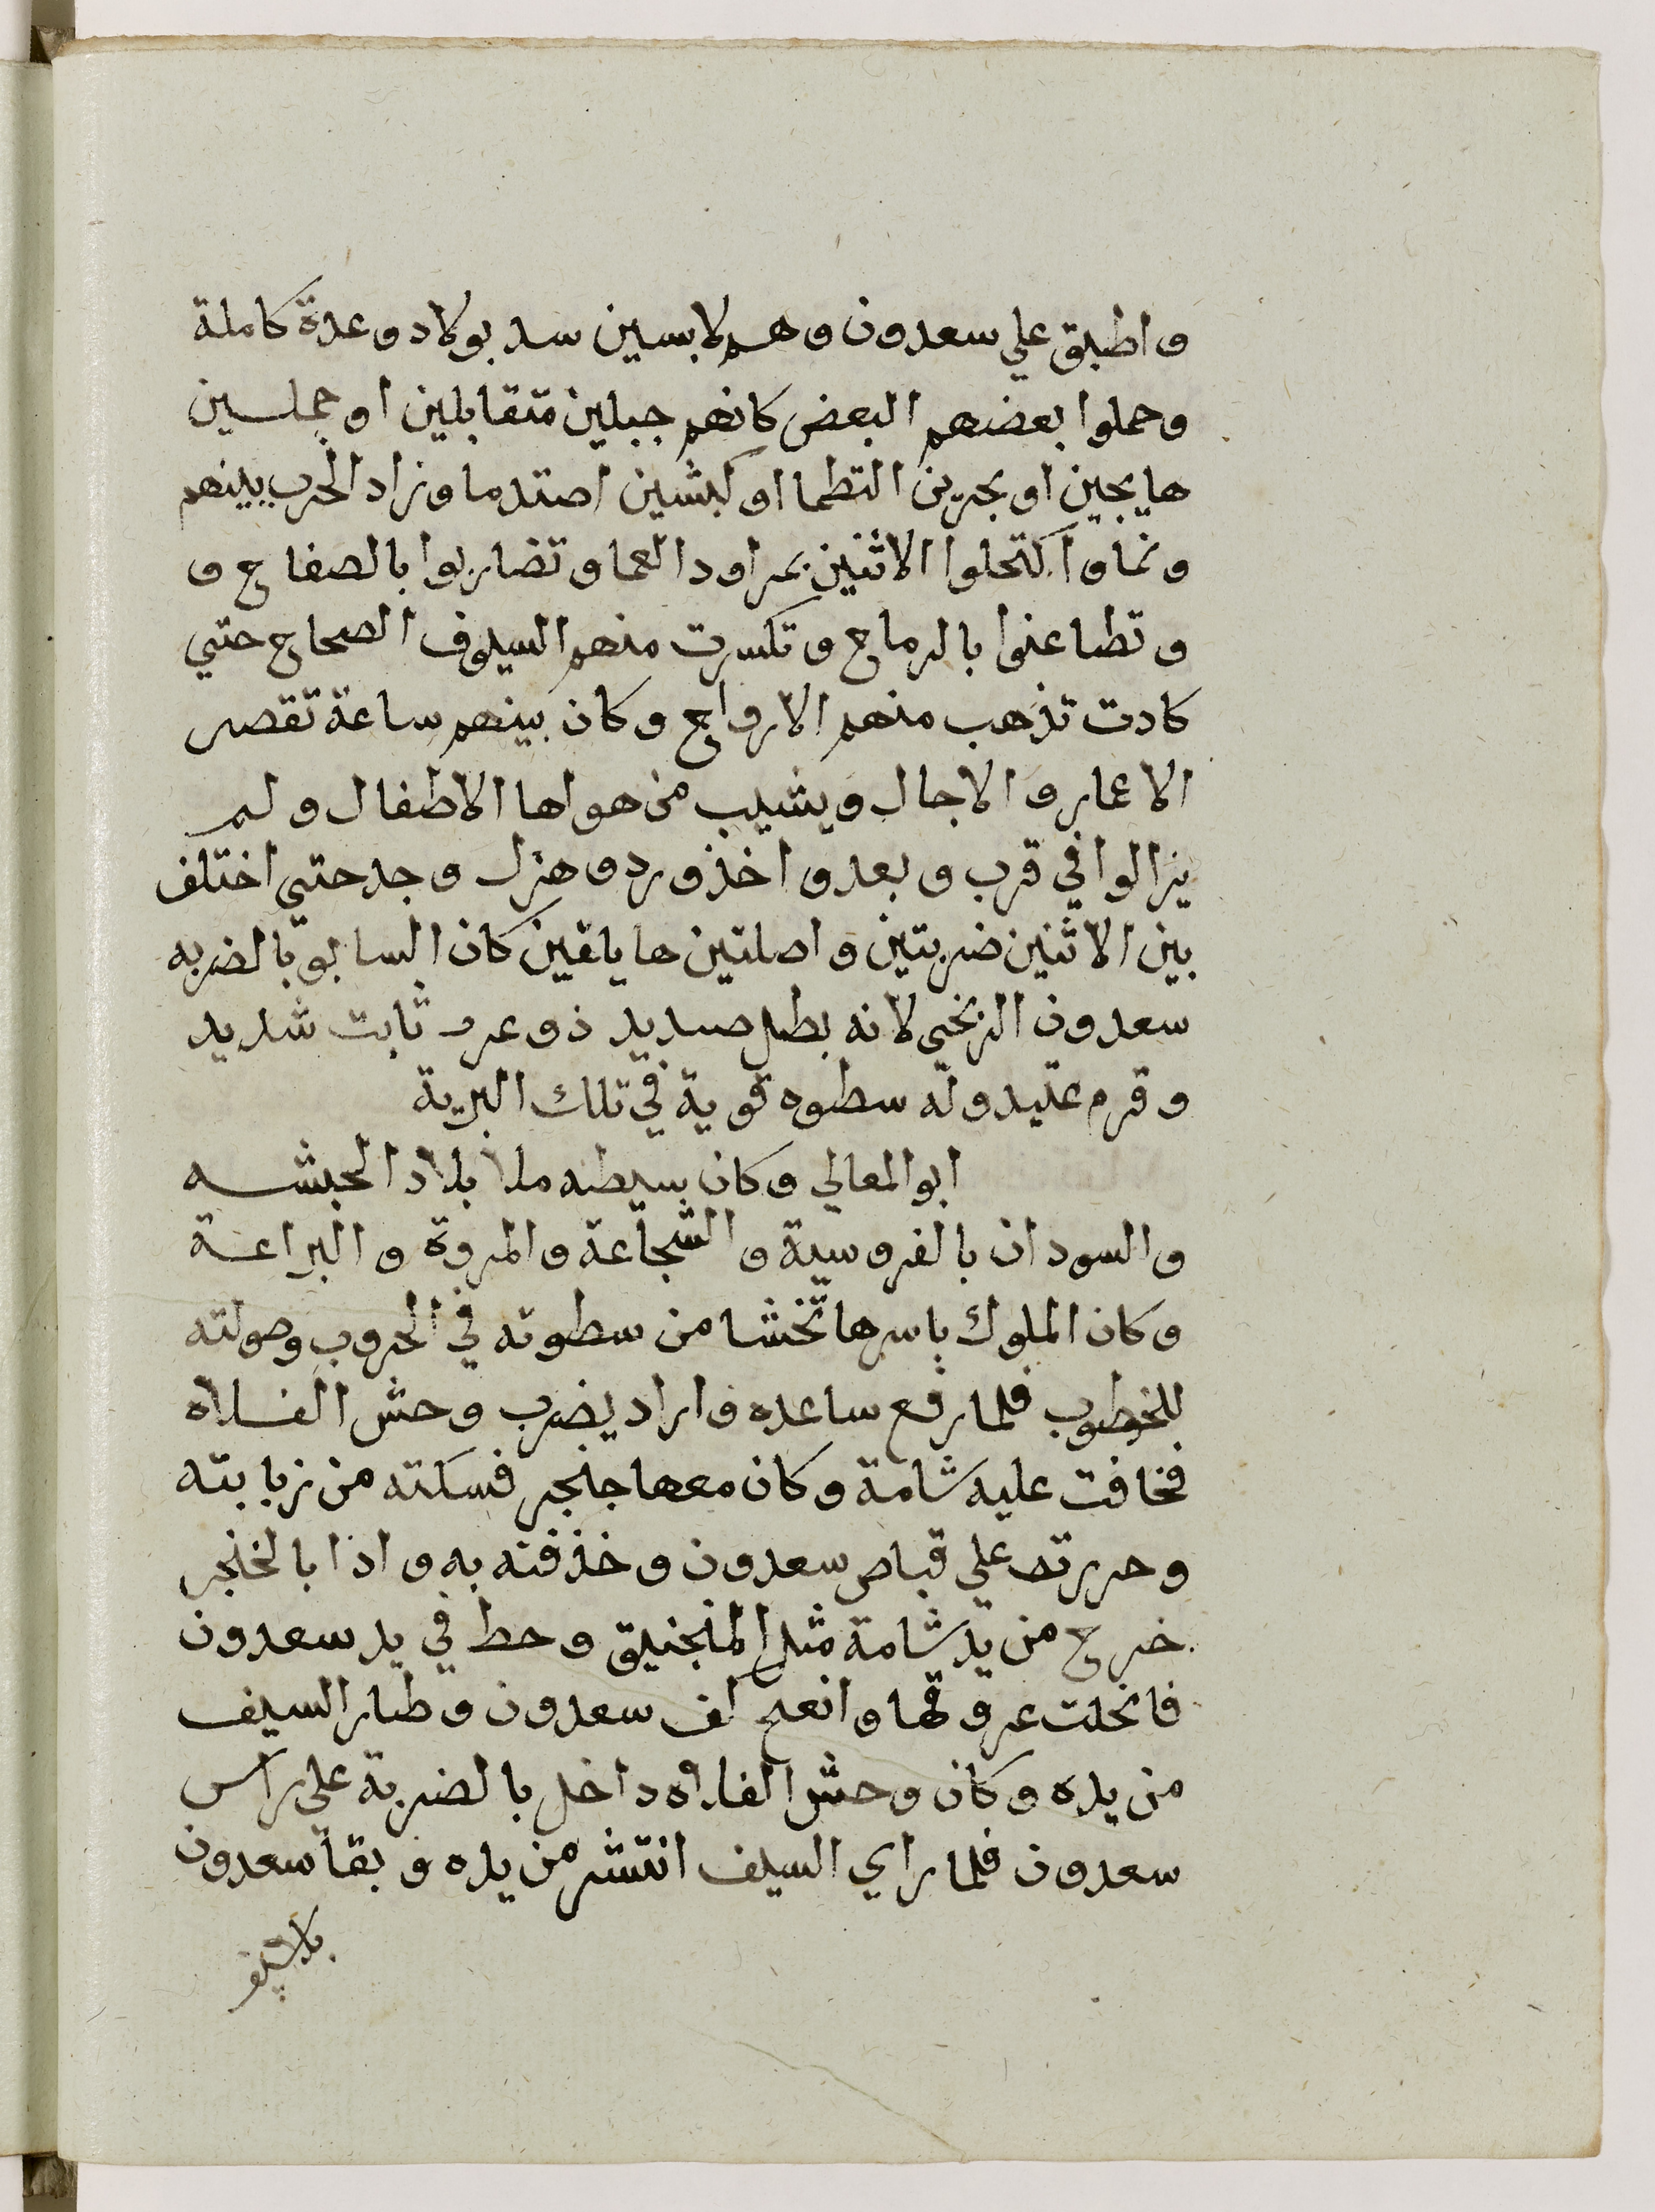 واطبق علي سعدون وهم لابسين سد بولاد وعدة كاملة
وحملوا بعضهم البعض كانهم جبلين متقابلين او جملسين
هايجين او بحرين التطما او كبشين اصتدما وزاد الحرب بينهم
ونما واكتحلوا الاثنين بمراود العما وتضاربوا بالصفاح و
وتطاعنوا بالرماح وتكسرت منهم السيوف الصحاح حتي
كادت تذهب منهم الارواح وكان بينهم ساعة تقصر
الاعمار والاجال ويشيب من هواها الاطفال ولم
يزالوا في قرب وبعد واخذ ورد وهزل وجد حتي اختلف
بين الاثنين ضربتين واصلتين هايافين كان السابق بالضربه
سعدون الزنجي لانه بطل صنديد ذو عرف ثابت شديد
وقرم عتيد وله سطوه قوية في تلك البرية
ابو المعالي وكان بسيطه ملا بلاد الحبشه
والسودان بالفروسية والشجاعة والمروة والبراعة
وكان الملوك باسرها تخشا من سطوته في الحروب وصولته
للخطوب فلما رفع ساعده واراد يضرب وحش الفلاه
فخافت عليه شامة وكان معها جنجر فسكته من زبابته
وحررته علي قباص سعدون وخذفته به واذا بالخنجر
خرج من يد شامة مثل المنجنيق وحط في يد سعدون
فانحلت عروقها وانعم كف سعدون وطار السيف
من يده وكان وحش الفلاه داخل بالضربة علي راس
سعدون فلما راي السيف انتشر من يده وبقا سعدون
بلا سيف